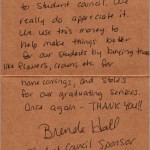 to student council. We
really do appreciate it.
We use this money to
help make things better
for our students by buying things
like flowers, crowns etc for
homecomings, and stoles
for our graduating seniors.
Once again - THANK YOU!!
Brenda Hall
Student Council Sponsor